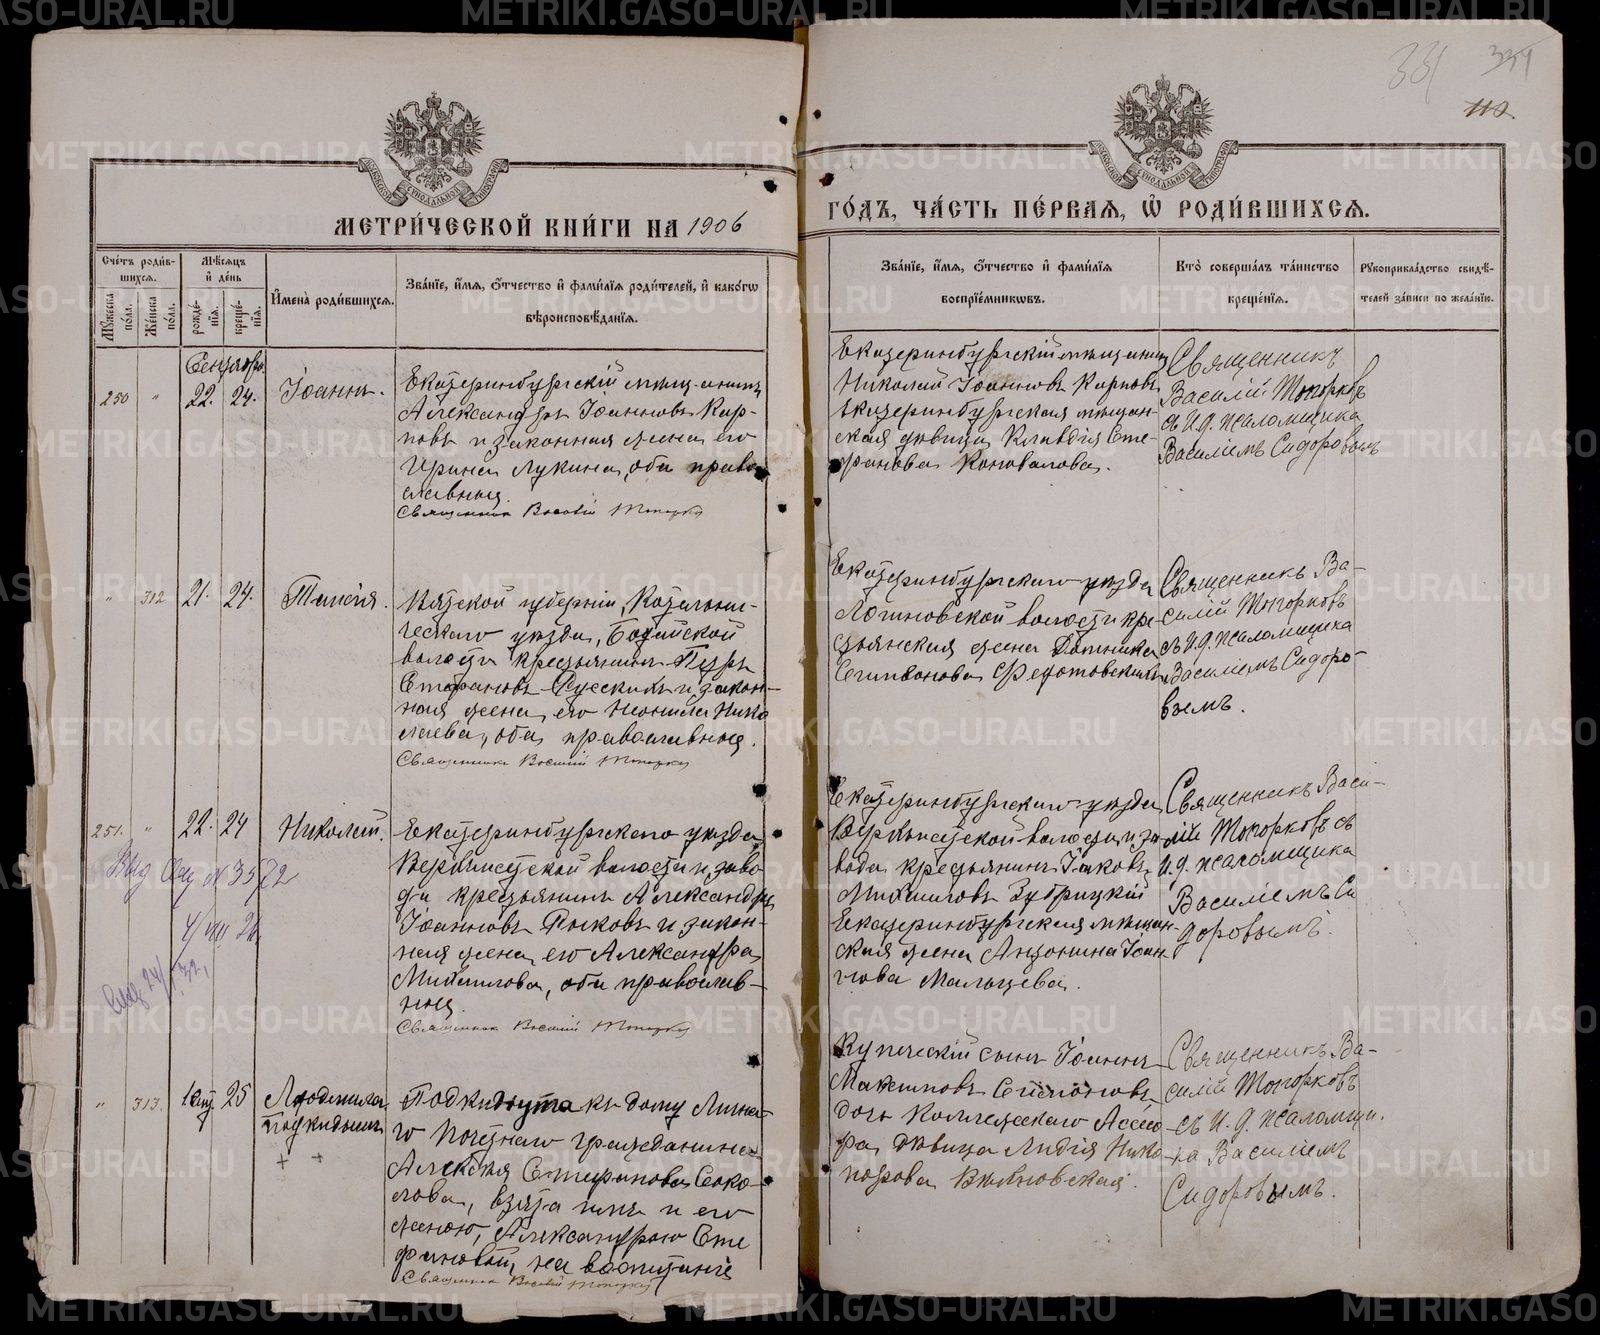 334
МЕТРИ́ЧЕСКОЙ КНИ́ГИ НА 1906
ГО́ДЪ, ЧА́СТЬ ПЕ́РВАЯ, Ѡ҆ РОДИ́ВШИХСЯ.
Сче́тъ роди́вшихся.
Мѣ́сяцъ и҆ де́нь
Мꙋ́жеска по́ла.
Же́нска по́ла.
рожде́нїя.
креще́нїя.
И҆мена̀ роди́вшихся.
Зва́нїе, и҆́мя, ѻ҆́тчество и҆ фами́лїя роди́телей, и҆ како́гѡ
вѣроисповѣ́данїя.
Зва́нїе, и҆́мя, ѻ҆́тчество и҆ фами́лїя
воспрїе́мникѡвъ.
Кто̀ соверша́лъ та́инство
креще́нїя.
Рꙋкоприкла́дство свидѣ́-
телей за́писи по жела́нїю.
Сентябрь
250 " 22. 24. Іоаннъ.
Екатеринбургскій мѣщанинъ
Александръ Іоанновъ Кар-
повъ и законная жена его
Ирина Лукина, оба право
славные.
Священникъ Василій Топорковъ
Екатеринбургскій мѣщанинъ
Николай Іоанновъ Карповъ
Екатеринбургская мѣщан-
ская дѣвица Клавдія Сте-
фанова Коновалова.
Священникъ
Василій Топорковъ
съ И. д. псаломщика
Василіемъ Сидоровымъ
" 312 21. 24. Таисія.
Вятской губерніи, Котельни-
ческаго уѣзда,
волости крестьянинъ Петръ
Стефановъ Русскихъ и закон-
ная жена его Неонила Нико
лаева, оба православные.
Священникъ Василій Топорковъ
Екатеринбургскаго уѣзда
Логиновской волости кре-
стьянская жена Домника
Священникъ Ва-
силій Топорковъ
съ И. д. псаломщика
Василіемъ Сидоро-
вымъ.
251. " 22. 24 Николай.
Екатеринбургскаго уѣзда,
Верхъисетской волости и заво
да крестьянинъ Александръ
Іоанновъ Рыковъ и закон-
ная жена его Александра
Михаилова, оба православ-
ные.
Священникъ Василій Топорковъ
№ 3572
Екатеринбургскаго уѣзда
Верхъисетской волости и за
вода крестьянинъ Іаковъ
Михаиловъ Зубрицкій
Екатеринбургская мѣщан-
ская жена Антонина Іоан
нова Мальцева.
Священникъ Васи-
лій Топорковъ съ
И. д. псаломщика
Василіемъ Си
доровымъ.
" 313. 25 Людмила
подкидышъ
+ +
Подкинута къ дому Лична-
го Почетнаго гражданина
Алексѣя Стефанова Соко-
лова, взята имъ и его
женою, Александрою Сте
фановой, на воспитаніе
Священникъ Василій Топорковъ
Купеческій сынъ Іоаннъ
Максимовъ Симоновъ
дочь Коллежскаго Ассесо
ра дѣвица Лидія Нико
норова
Священникъ Ва-
силій Топорковъ
съ И. д. псаломщи-
ка Василіемъ
Сидоровымъ.